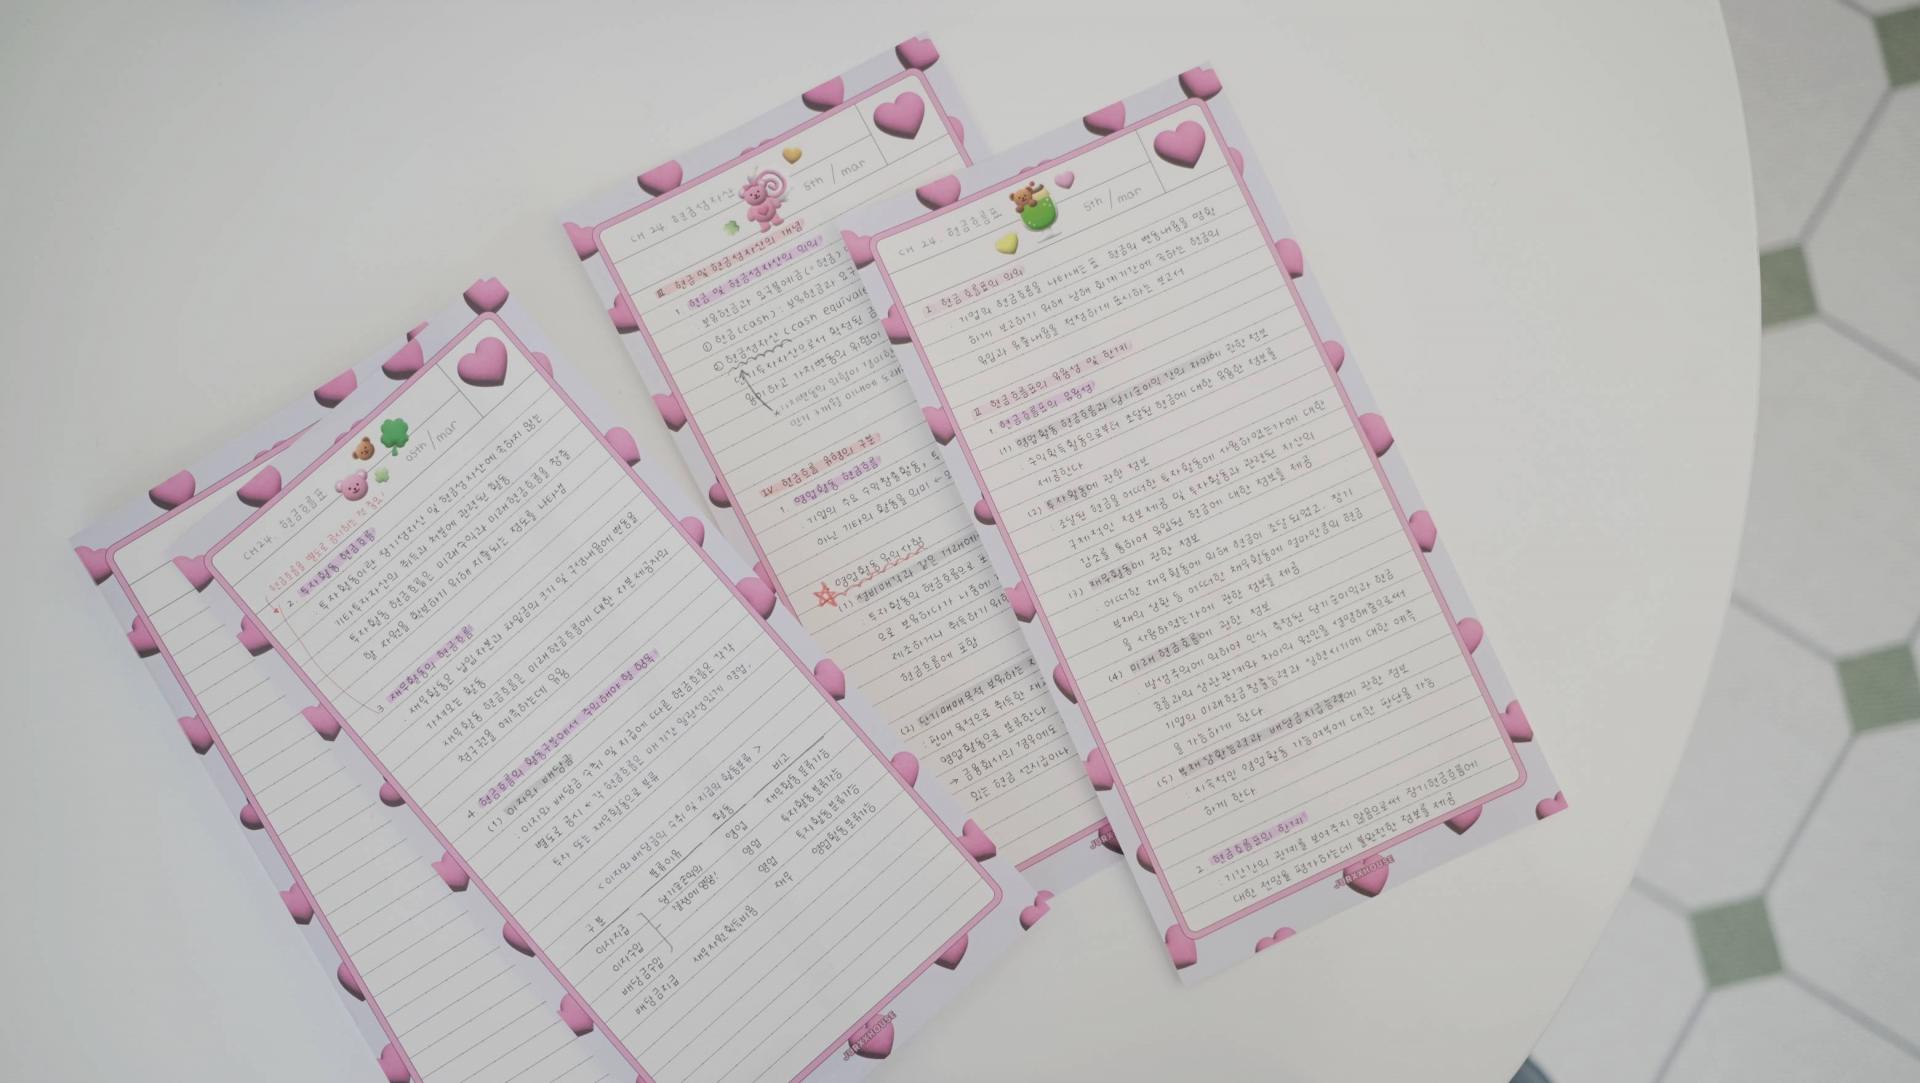 CH 24. 현금흐름표
05th / mar
현금흐름을 별도로 공시하는 전 중요!
2. 투자활동 현금흐름
: 투자활동이란 장기성자산 및 현금성자산에 속하지 않는
기타투자자산의 취득과 처분에 관련된 활동
투자활동 현금흐름은 미래수익과 미래현금흐름을 창출
할 자원을 확보하기 위해 지출되는 정도를 나타냄
3. 재무활동의 현금흐름
: 재무활동은 납입자본과 차입금의 크기 및 구성내용에 변동을
가져오는 활동
재무활동 현금흐름은 미래현금흐름에 대한 자본 제공자의
청구권을 예측하는데 유용
4. 현금흐름의 활동구분에서 주의해야 할 항목
(1) 이자와 배당금
: 이자와 배당금 수취 및 지급에 따른 현금흐름은 각각
별도로 공시 ← 각 현금흐름은 매 기간 일관성있게 영업,
투자 또는 재무활동으로 분류
< 이자와 배당금의 수취 및 지급의 활동분류 >
구분 분류이유 활동 비고
이자지급 당기순손익의 영업 재무활동 분류가능
이자수입 결정에 영향! 영업 투자활동 분류가능
배당금수입 영업 투자활동분류가능
배당금지급 재무자원 획득비용 재무 영업활동분류가능
JURXXHOUSE
CH 24. 현금성자산
5th / mar
Ⅲ 현금 및 현금성자산의 개념
1. 현금 및 현금성자산의 의의
: 보유현금과 요구불예금(=현금)
① 현금(cash) : 보유현금과 요구
② 현금성자산 (cash equivale
단기투자자산으로서 확정된 금
용이하고 가치변동의 위험이
* 가치변동의 위험이 경미한
만기 3개월 이내에 도래
Ⅳ 현금흐름 유형의 구분
1. 영업활동 현금흐름
: 기업의 주요 수익창출활동,
아닌 기타의 활동을 의미
영업활동 유의사항
(1) 설비매각과 같은 거래에
: 투자활동의 현금흐름으로
으로 보유하다가 나중에
제조하거나 취득하기 위한
현금흐름에 포함
(2) 단기매매목적 보유하는
: 판매 목적으로 취득한 재고
영업활동으로 분류한다
→ 금융회사의 경우에도
있는 현금 선지급이나
CH 24. 현금흐름표
5th / mar
Ⅰ 현금 흐름표의 의의
: 기업의 현금흐름을 나타내는 표 현금의 변동내용을 명확
하게 보고하기 위해 당해 회계기간에 속하는 현금의
유입과 유출내용을 적정하게 표시하는 보고서
Ⅱ 현금흐름표의 유용성 및 한계
1. 현금흐름표의 유용성
(1) 영업활동 현금흐름과 당기순이익 간의 차이에 관한 정보
: 수익획득활동으로부터 조달된 현금에 대한 유용한 정보를
제공한다
(2) 투자활동에 관한 정보
: 조달된 현금을 어떠한 투자활동에 사용하였는가에 대한
구체적인 정보제공 및 투자활동과 관련된 자산의
감소를 통하여 유입된 현금에 대한 정보를 제공
(3) 재무활동에 관한 정보
: 어떠한 재무활동에 의해 현금이 조달되었고, 장기
부채의 상환 등 어떠한 재무활동에 얼마만큼의 현금
을 사용하였는가에 관한 정보를 제공
(4) 미래 현금흐름에 관한 정보
: 발생주의에 의하여 인식 측정된 당기순이익과 현금
흐름과의 상관관계와 차이의 원인을 설명해줌으로써
기업의 미래현금창출능력과 실현시기에 대한 예측
을 가능하게 한다
(5) 부채 상환능력과 배당금지급능력에 관한 정보
: 지속적인 영업활동 가능여부에 대한 판단을 가능
하게 한다
2. 현금흐름표의 한계
: 기간간의 관계를 보여주지 않음으로써 장기현금흐름에
대한 전망을 평가하는데 불완전한 정보를 제공
JURXXHOUSE